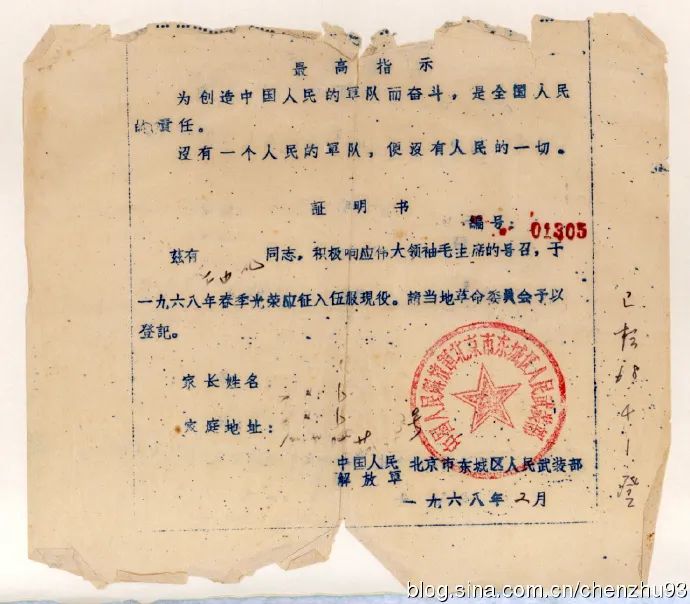 最高指示
为创造中国人民的軍队而奋斗，是全国人民
的責任。
沒有一个人民的軍队，便沒有人民的一切。
証明书
编号：01305
茲有 同志，积极响应伟大领袖毛主席的号召，于
一九六八年春季光荣应征入伍服現役。請当地革命委員会予以
登記。
家长姓名
家庭地址： 号
中国人民解放軍北京市东城区人民武装部
中国人民 北京市东城区人民武装部
解放軍
一九六八年2月
68.4.1
blog.sina.com.cn/chenzhu93